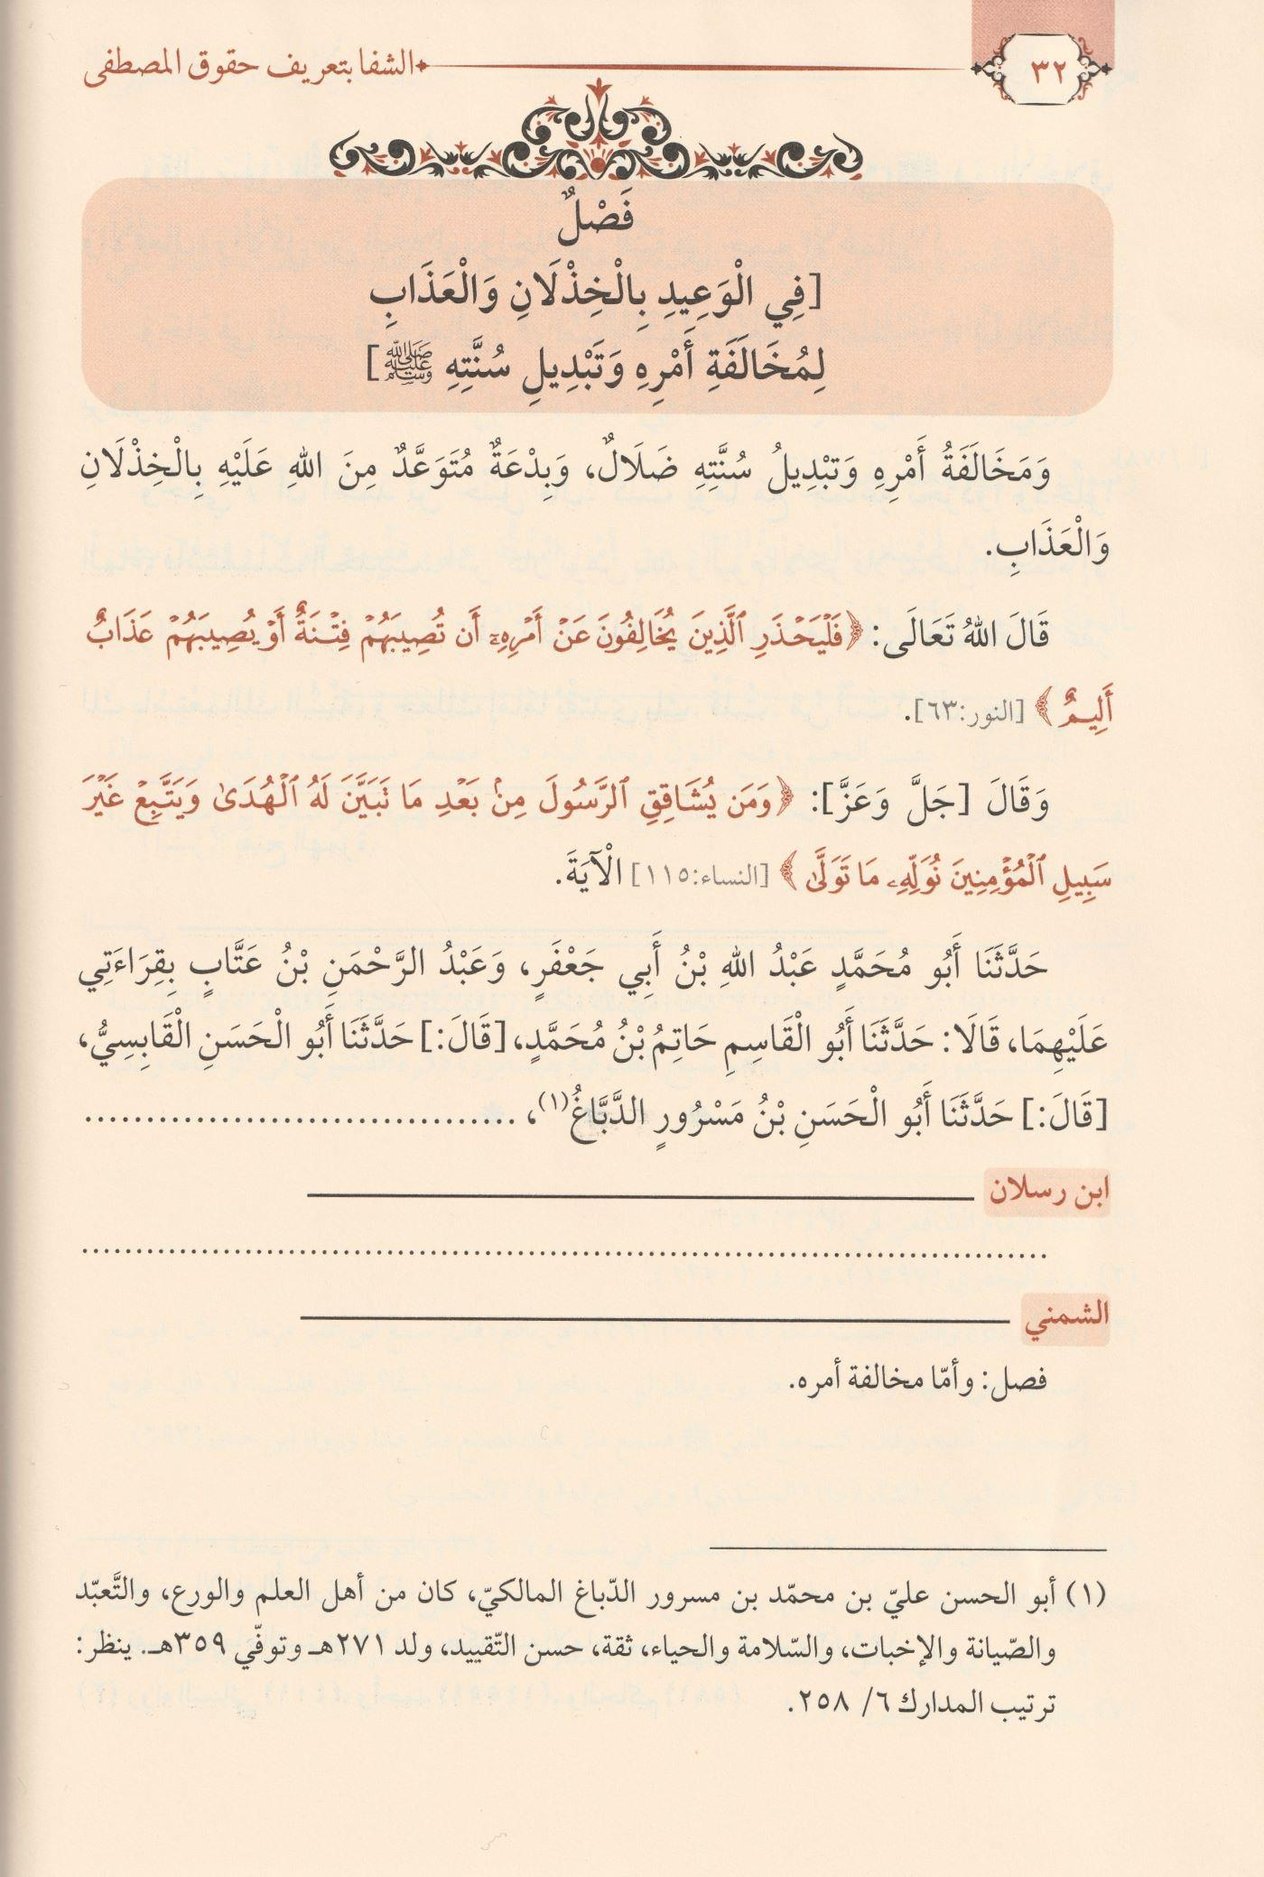 ٣٢
الشفا بتعريف حقوق المصطفى
فَصْلٌ
[فِي الْوَعِيدِ بِالْخِذْلَانِ وَالْعَذَابِ
لِمُخَالَفَةِ أَمْرِهِ وَتَبْدِيلِ سُنَّتِهِ ﷺ]
وَمَخَالَفَةُ أَمْرِهِ وَتَبْدِيلُ سُنَّتِهِ ضَلَالٌ، وَبِدْعَةٌ مُتَوَعَّدٌ مِنَ اللهِ عَلَيْهِ بِالْخِذْلَانِ
وَالْعَذَابِ.
قَالَ اللهُ تَعَالَى: ﴿فَلْيَحْذَرِ ٱلَّذِينَ يُخَالِفُونَ عَنْ أَمْرِهِۦٓ أَن تُصِيبَهُمْ فِتْنَةٌ أَوْ يُصِيبَهُمْ عَذَابٌ
أَلِيمٌ﴾ [النور:٦٣].
وَقَالَ [جَلَّ وَعَزَّ]: ﴿وَمَن يُشَاقِقِ ٱلرَّسُولَ مِنۢ بَعْدِ مَا تَبَيَّنَ لَهُ ٱلْهُدَىٰ وَيَتَّبِعْ غَيْرَ
سَبِيلِ ٱلْمُؤْمِنِينَ نُوَلِّهِۦ مَا تَوَلَّىٰ﴾ [النساء:١١٥] الْآيَةَ.
حَدَّثَنَا أَبُو مُحَمَّدٍ عَبْدُ اللهِ بْنُ أَبِي جَعْفَرٍ، وَعَبْدُ الرَّحْمَنِ بْنُ عَتَّابٍ بِقِرَاءَتِي
عَلَيْهِمَا، قَالَا: حَدَّثَنَا أَبُو الْقَاسِمِ حَاتِمُ بْنُ مُحَمَّدٍ، [قَالَ:] حَدَّثَنَا أَبُو الْحَسَنِ الْقَابِسِيُّ،
[قَالَ:] حَدَّثَنَا أَبُو الْحَسَنِ بْنُ مَسْرُورٍ الدَّبَّاغُ(١)، ....................................
ابن رسلان
................................................................................
الشمني
فصل: وأمّا مخالفة أمره.
(١) أبو الحسن عليّ بن محمّد بن مسرور الدّباغ المالكيّ، كان من أهل العلم والورع، والتَّعبّد
والصّيانة والإخبات، والسّلامة والحياء، ثقة، حسن التّقييد، ولد ٢٧١هـ وتوفّي ٣٥٩هـ. ينظر:
ترتيب المدارك ٦/ ٢٥٨.